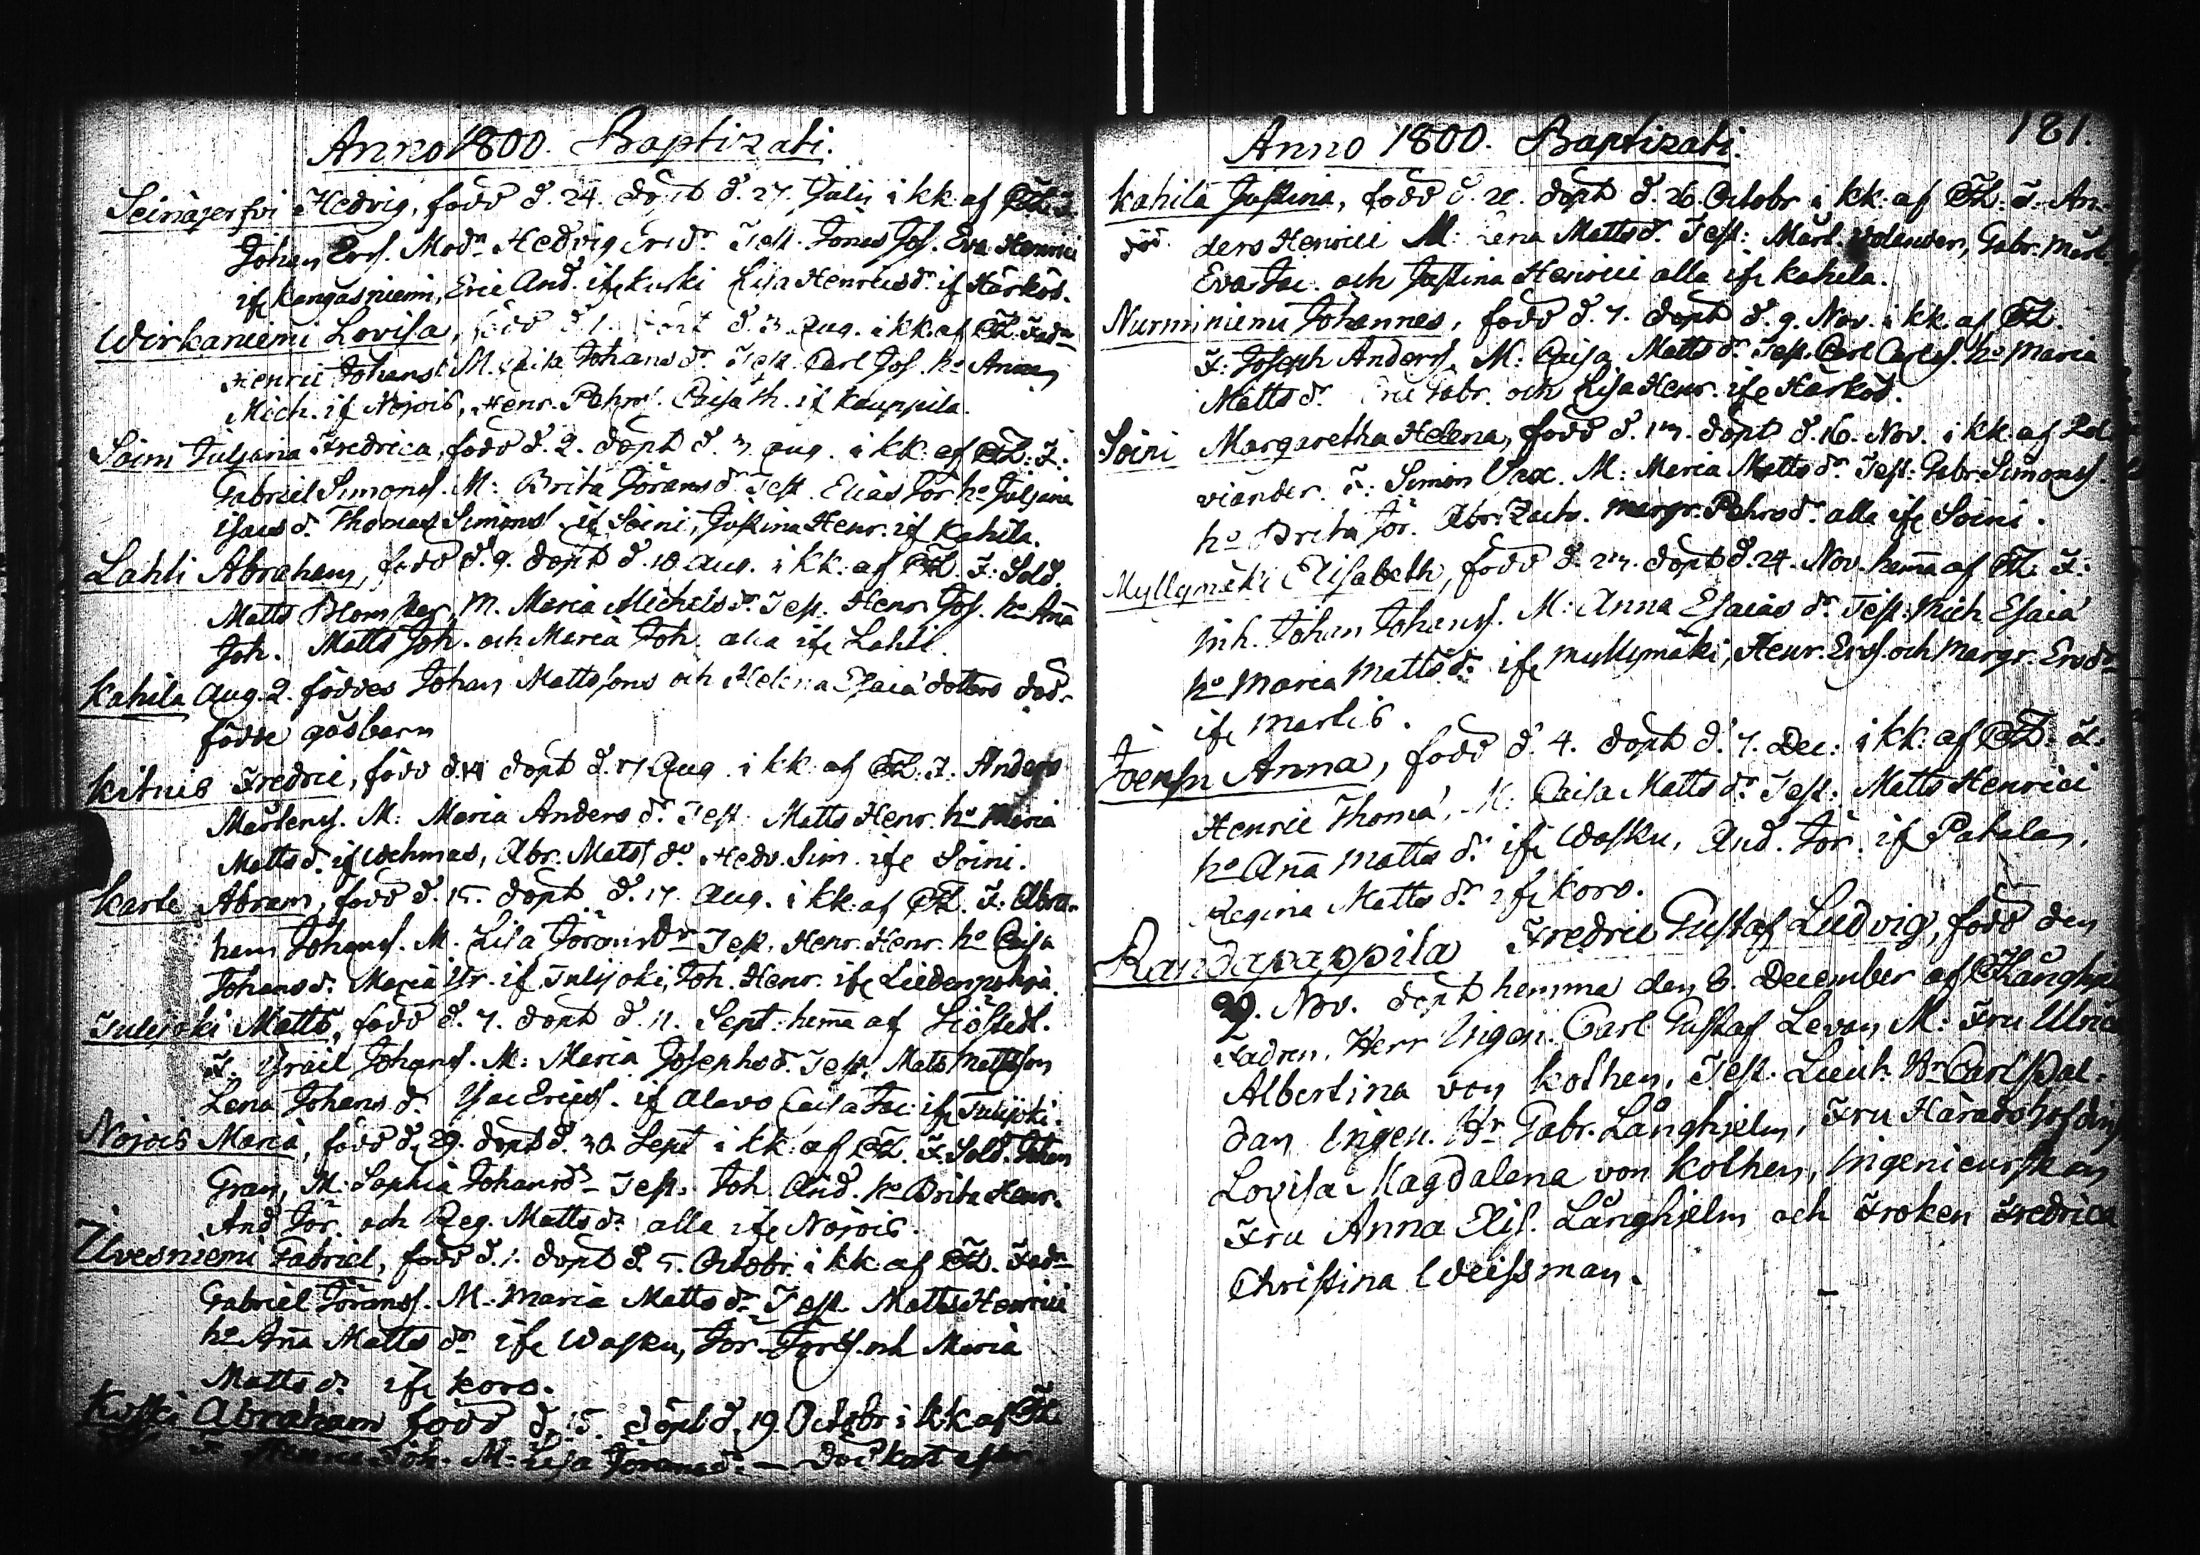 Anno 1800. Baptizati.
Seinäjerfvi Hedvig, född d. 24. döpt d. 27. Julii i kk. af
Johan Ers. Modn Hedvig Ersdr Test. Jonas Jos. Eva Henrici
ifr Kangasniemi, Eric And. ifr Kuski Lisa Henricsdr if Härkös.
Wirkaniemi Lovisa, född d. 1. döpt d. 3. Aug. i kk. af Fadn
Henric Johans M. Caisa Johansdr Test. Carl Jos. ho Anna
Mich. if Nojois, Henr. Pehrs. Caisa Th. if Kauppila.
Soini Juliana Fredrica, född d. 2. döpt d. 3. Aug. i kk. af F.
Gabriel Simons. M: Brita Jöransdr Test. Elias Jör ho Juliana
Isacs d. Thomas Simons if Soini, Justina Henr. if Kahila.
Lahti Abraham, född d. 9. döpt d. 10. Aug. i kk. af F. Sold.
Matts Blom, M. Maria Michelsdr Test. Henr. Jos. ho Ana
Joh. Matts Joh. och Maria Joh. alla ifr Lahti.
Kahila Aug. 2. föddes Johan Mattssons och Helena Esaiä dotters död-
födde gåsbarn
Kitnis Fredric, född d. 14 döpt d. 17 Aug. i kk. af F. Anders
Mårtens. M: Maria Andersdr Test. Matts Henr. ho Maria
Matts d. if Wehmas, Abr. Mats do Hedv. Sim. ifr Soini.
Karte Abram, född d. 15. döpt d. 17. Aug. i kk. af F: Abra-
ham Johans. M. Lisa Jöransdr Test. Henr. Henr. ho Caisa
Johans d. Maria Ur. if Tulijoki, Joh. Henr. ifr Liedenpohja.
Tulijoki Matts, född d. 7. döpt d. 11. Sept. hema af Siöstedt.
F. Israil Johans. M: Maria Josephsd. Test. Mats Mattsson
Lena Johans d. Isac Erics. if Alavo Caisa Jac. ifr Tulijoki.
Nojois Maria, född d. 29. döpt d. 30. Sept i kk. af F. Sold. Johan
Gran, M: Sophia Johansdr Test. Joh. And. ho Brita Henr.
And Jör. och Reg. Mattsdr alla ifr Nojois.
Ilvesniemi Gabriel, född d. 1. döpt d. 5. Octobr. i kk. af Fadn
Gabriel Jörans. M: Maria Mattsdr Test. Matts Henrici
ho Ana Mattsdr ifr Wasku, Jör. Jörs. och Maria
Matts d. ifr Koro.
Koski Abraham född d. 15. döpt d. 19. Octobr i kk af
F Henric Joh. M: Lisa Jöransd. – död kort efter.
Anno 1800. Baptizati.
181.
Kahila Justina, född d. 20. döpt d. 26. Octobr i kk. af F. An-
död. ders Henrici M: Lena Mattsd. Test: Mårt. Gabr. Mårt.
Eva Jac. och Justina Henrici alla ifr Kahila.
Nurminiemi Johannes, född d. 7. döpt d. 9. Nov. i kk. af
F: Joseph Anders. M: Caisa Mattsdr Test. Carl Carls. ho Maria
Mattsdr Eric Gabr. och Lisa Henr. ifr Härkös.
Soini Margaretha Helena, född d. 13. döpt d. 16. Nov. i kk. af
F: Simon M: Maria Mattsdr Test: Gabr. Simons.
ho Brita Jör. Abr. Zach. Margr. Pehrsd. alla ifr Soini.
Myllymäki Elisabeth, född d. 23. döpt d. 24. Nov. hema af F:
Inh. Johan Johans. M: Anna Esaias dr Test: Mich Esaiä
ho Maria Mattsdr ifr Myllymäki, Henr. Ers. och Margr. Ersdr
ifr Martis.
Joensu Anna, född d. 4. döpt d. 7. Dec. i kk. af F.
Henric Thomä, M: Caisa Mattsdr Test: Matts Henrici
ho Ana Mattsdr ifr Wasku, And. Jör. if Pakalan,
Regina Mattsdr ifr Koro.
Randapappila Fredric Gustaf Ludvig, född den
29. Nov. döpt hemma den 6. December af
Fadren, Herr Ingen. Carl Gustaf Levan, M: Fru Ulrica
Albertina von Kothen, Test. Lieut. Hr Carl Pal-
dan Ingen. Hr Gabr. Långhjelm, Fru Häradshöfdin
Lovisa Magdalena von Kothen, Ingenieurskan
Fru Anna Elis. Långhjelm och Fröken Fredrica
Christina Weissman.